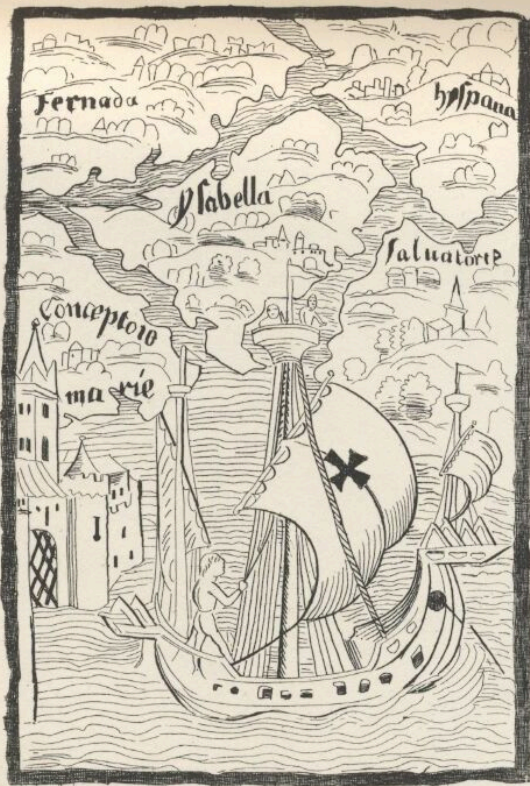 Fernada
hyspana
ysabella
Saluatorie
Conceptoio
marie